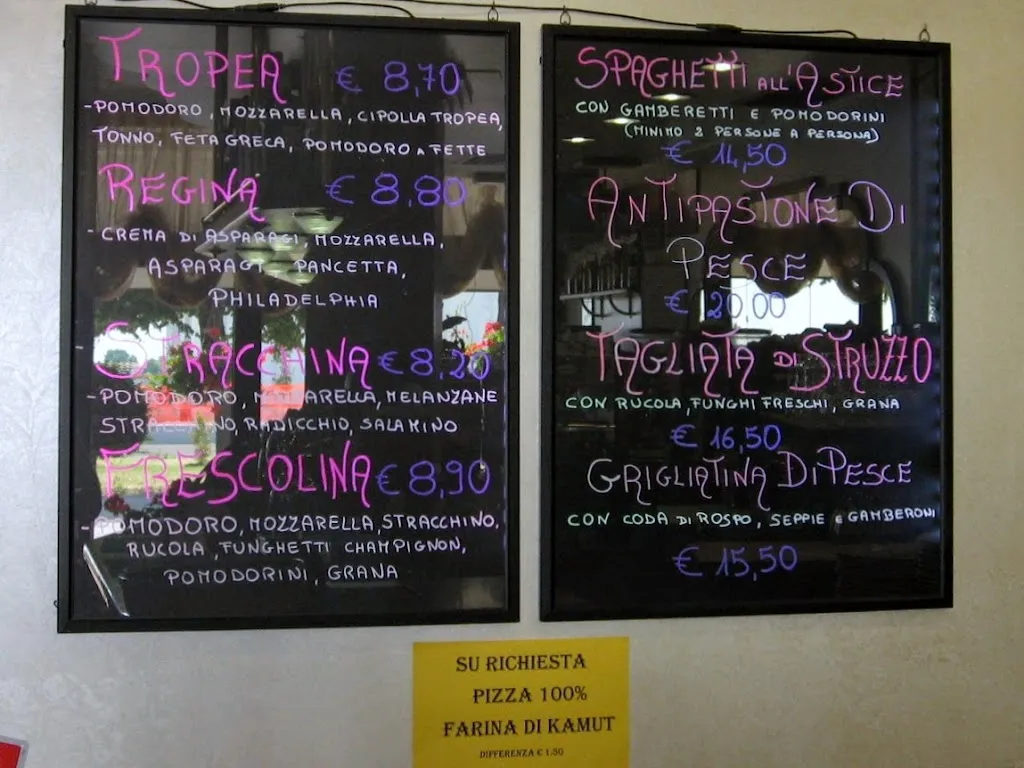 TROPEA € 8,70
- POMODORO, MOZZARELLA, CIPOLLA TROPEA,
TONNO, FETA GRECA, POMODORO A FETTE
REGINA € 8,80
- CREMA DI ASPARAGI, MOZZARELLA,
ASPARAGI, PANCETTA,
PHILADELPHIA
STRACCHINA € 8,20
- POMODORO, MOZZARELLA, MELANZANE
STRACCHINO, RADICCHIO, SALAMINO
FRESCOLINA € 8,90
- POMODORO, MOZZARELLA, STRACCHINO,
RUCOLA, FUNGHETTI CHAMPIGNON,
POMODORINI, GRANA
SPAGHETTI ALL'ASTICE
CON GAMBERETTI E POMODORINI
(MINIMO 2 PERSONE A PERSONA)
€ 14,50
ANTIPASTONE DI
PESCE
€ 20,00
TAGLIATA DI STRUZZO
CON RUCOLA, FUNGHI FRESCHI, GRANA
€ 16,50
GRIGLIATINA DI PESCE
CON CODA DI ROSPO, SEPPIE E GAMBERONI
€ 15,50
SU RICHIESTA
PIZZA 100%
FARINA DI KAMUT
DIFFERENZA € 1.50